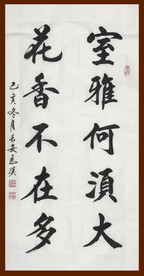 室雅何須大
花香不在多
己亥冬月長安